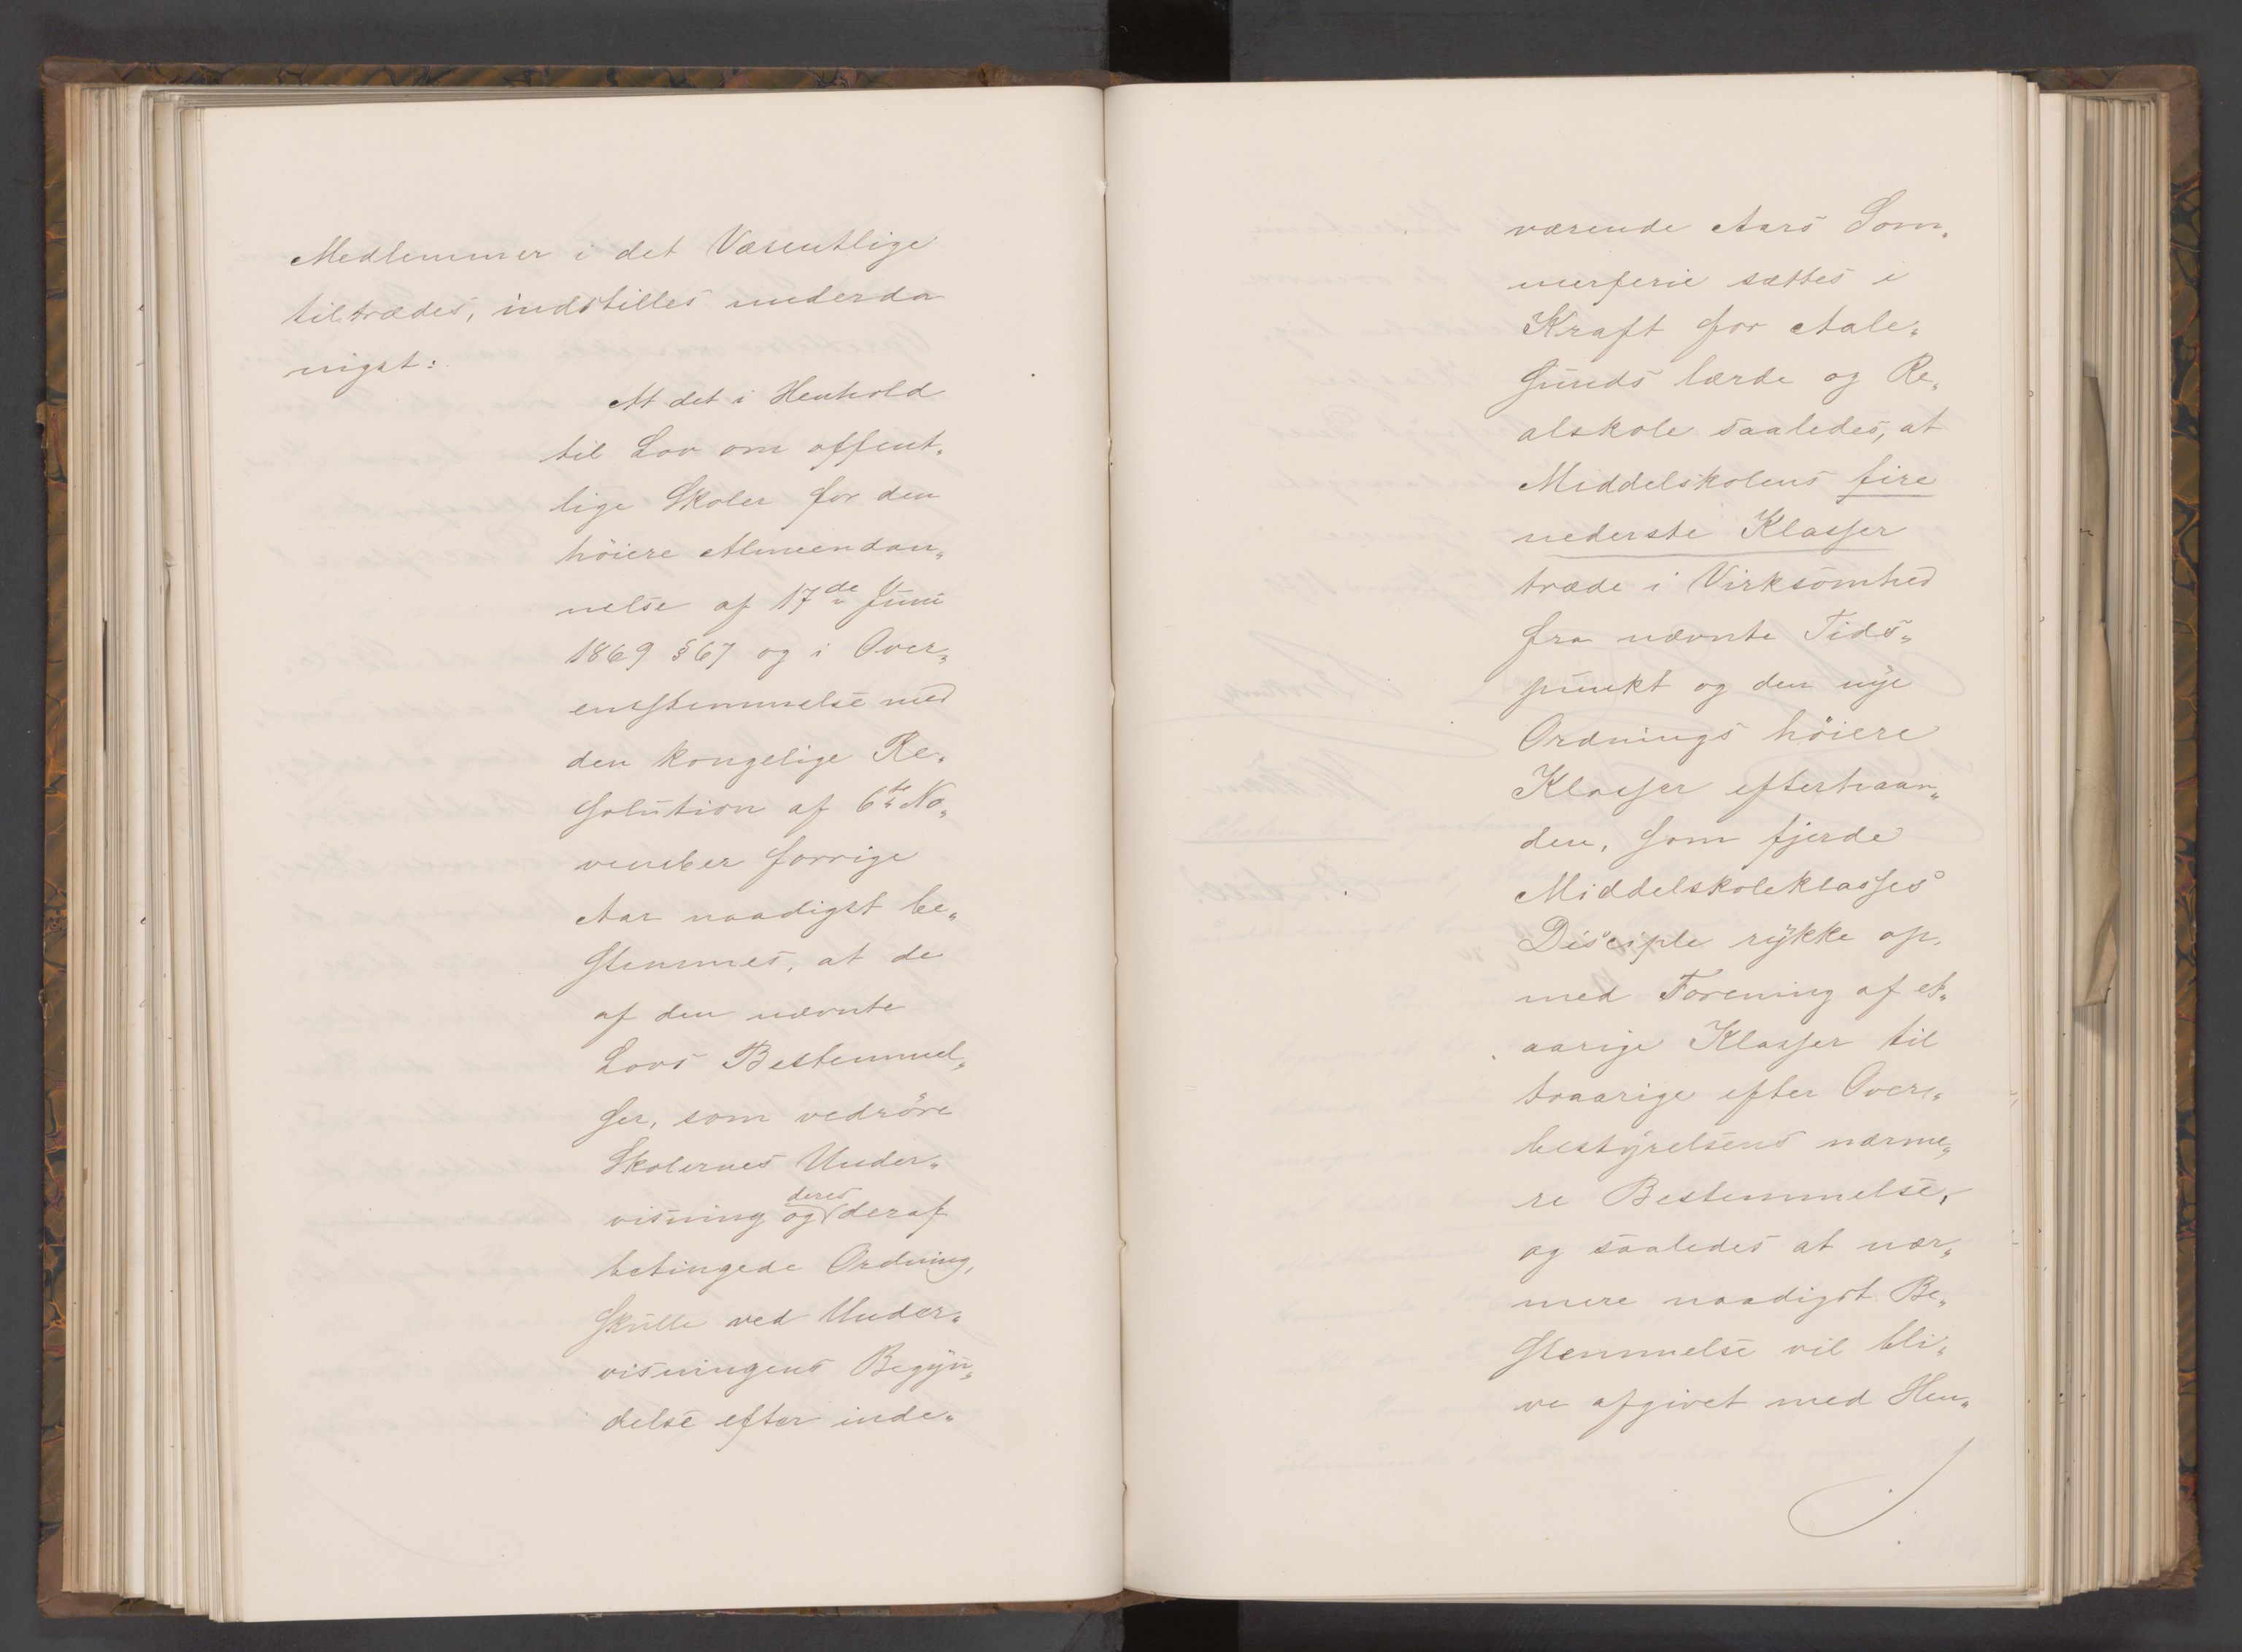 Medlemmer i det Væsentlige
tiltrædes, indstilles underda
nigst:
At det i Henhold
til Lov om offent„
lige Skoler for den
höiere Almeendan„
nelse af 17de Juni
1869 § 67 og i Over„
ensstemmelse med
den kongelige Re„
solution af 6te No„
vember forrige
Aar naadigst be„
stemmes, at de
af den nævnte
Lovs Bestemmel„
ser, som vedröre
Skolernes Under„
visning og deres deraf
betingede Ordning,
skulle ved Under„
visningens Begyn„
delse efter inde„
værende Aars Som„
merferie sættes i
Kraft for Aale„
sunds lærde og Re„
alskole saaledes, at
Middelskolens fire
nederste Klasser
træde i Virksomhed
fra nævnte Tids„
punkt og den nye
Ordnings höiere
Klasser efterhaan„
den, som fjerde
Middelskoleklasses
Disciple rykke op,
med Forening af et„
aarige Klasser til
toaarige efter Over„
bestyrelsens nærme„
re Bestemmelse,
og saaledes at nær„
mere naadigst Be„
stemmelse vil bli„
ve afgivet med Hen„